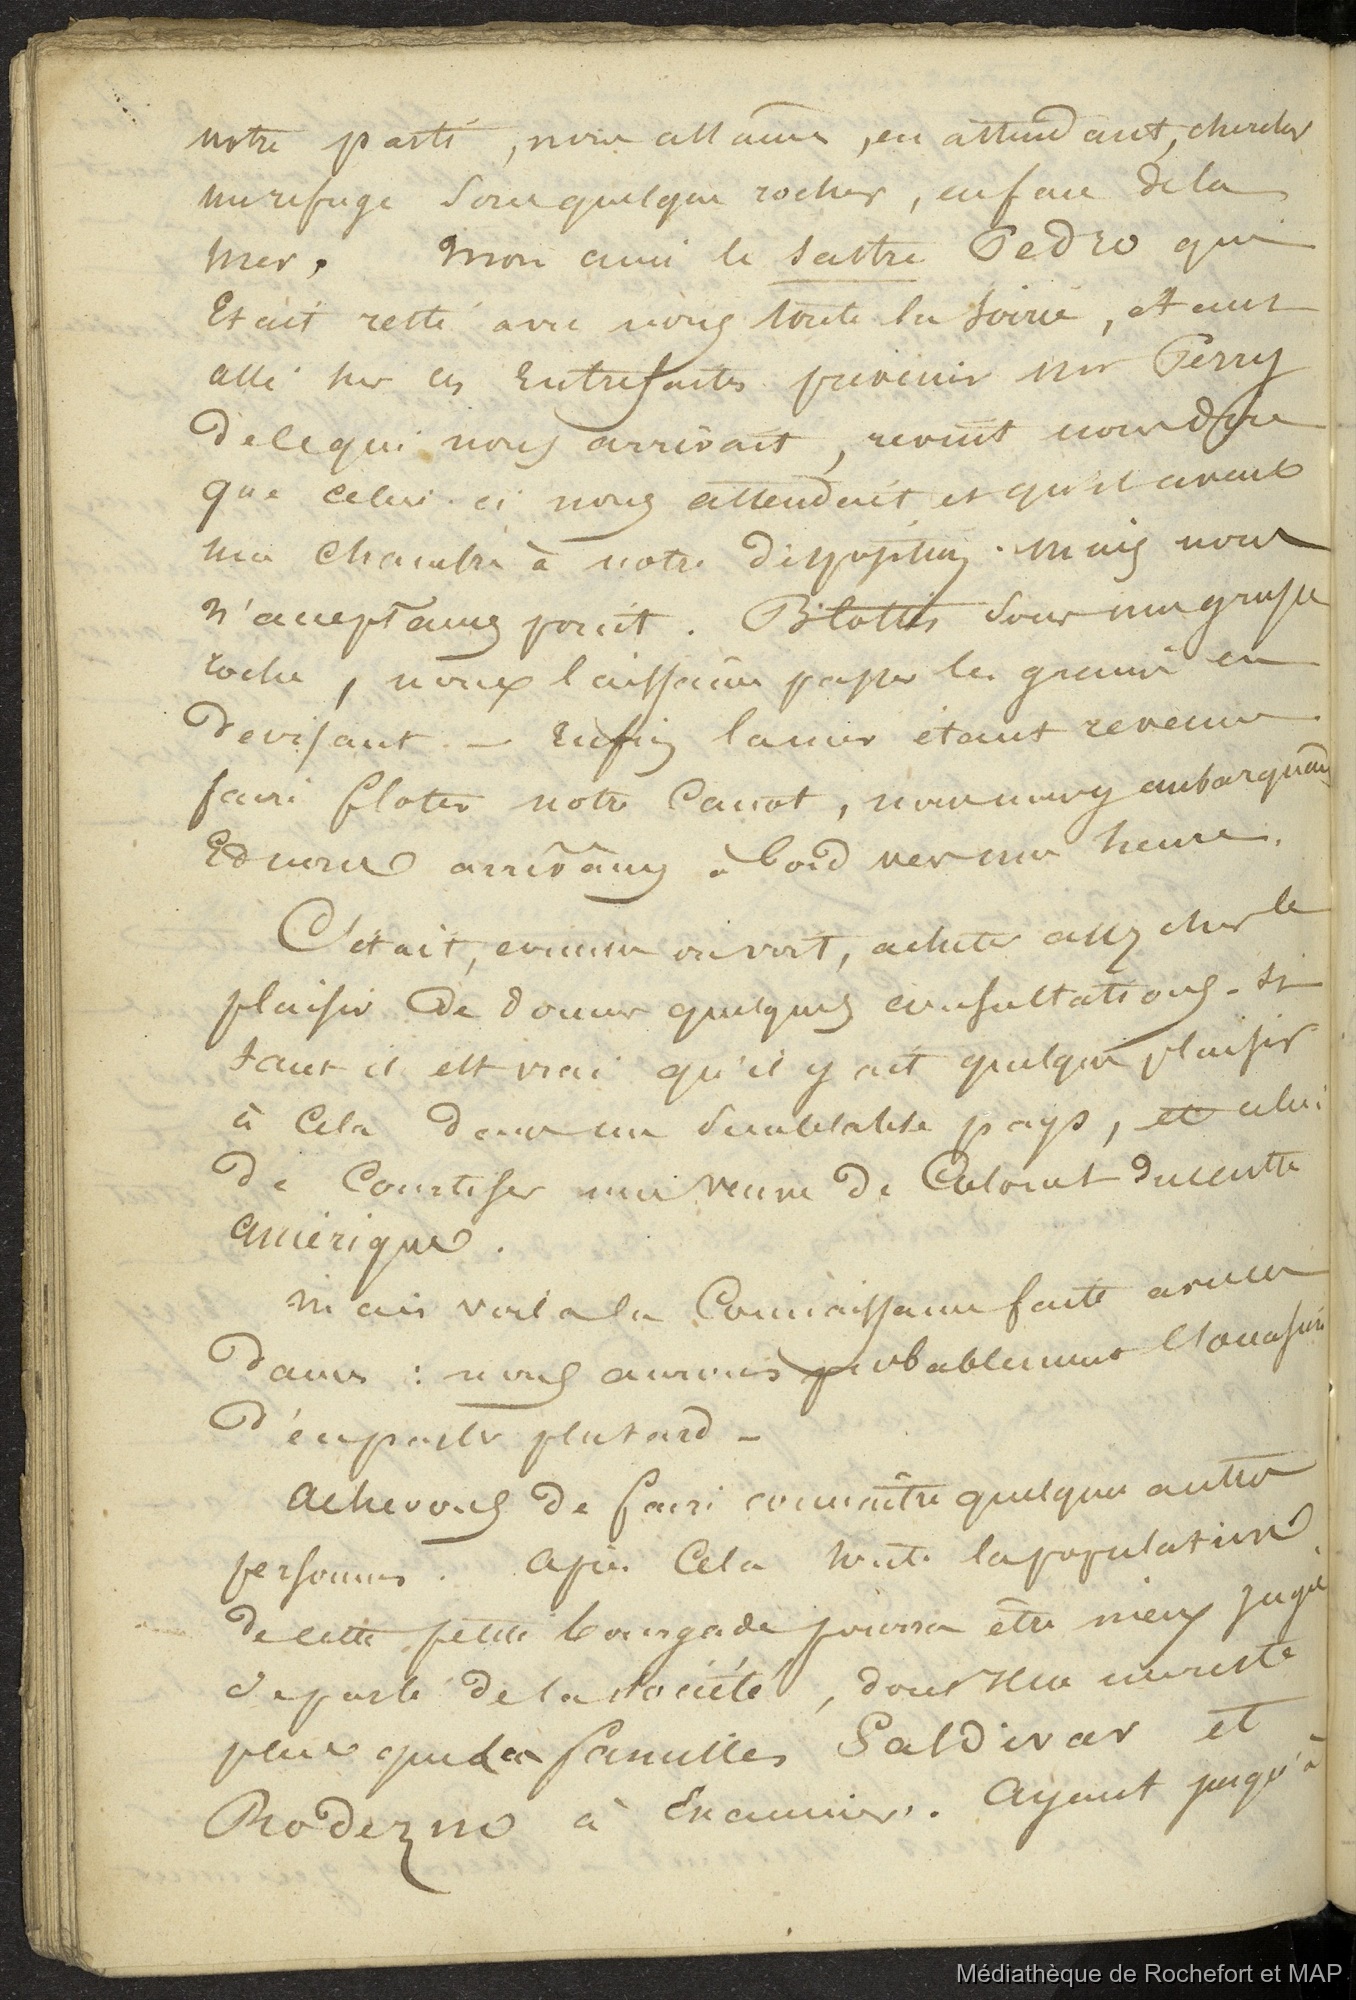 notre parti, nous allames, en attendant, chercher
un refuge sous quelque rocher, en face de la
mer. Mon ami le sastre Pedro qui
Etait resté avec nous toute la soirée, étant
allé sur ces Entrefaites prévenir Mr Perry
de ce qui nous arrivait, revint nous dire
que celui-ci nous attendait et qu'il avait
une chambre à notre disposition. Mais nous
n'acceptames point. Blottis sous une grosse
roche, nous laissames passer les grains en
devisant. – Enfin la mer étant revenue
faire floter notre Canot, nous nous y embarquâmes
Et nous arrivâmes à bord vers une heure.
C'était, comme on voit, acheter assez cher le
plaisir de donner quelques consultations. si
tant il est vrai qu'il y ait quelque plaisir
à Cela dans un semblable pays, et celui
de Courtiser une veuve de Colonel du centre
amérique.
Mais voila la Connaissance faite avec ces
dames : nous aurons probablement l'occasion
d'en parler plus tard –
Achevons de faire connaître quelques autres
personnes. Après Cela toute la population
de cette petite bourgade pourra être mieux jugée
de la société, dont il ne me reste
plus que les familles Saldivar et
Rodezno à Examiner. Ayant jusqu'à
Médiathèque de Rochefort et MAP